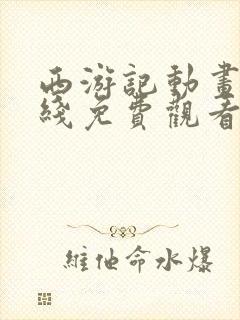 西游記動畫
綫免費觀看
維他命水爆